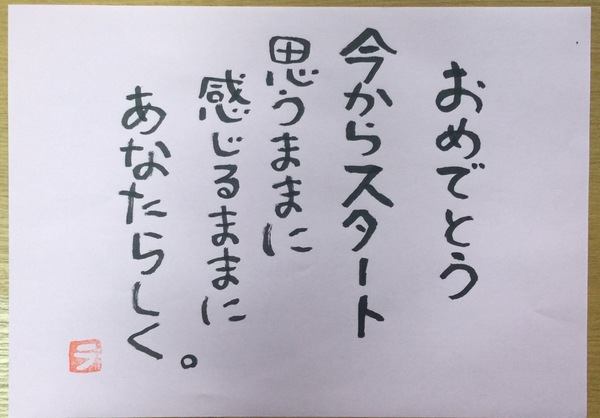 おめでとう
今からスタート
思うままに
感じるままに
あなたらしく。